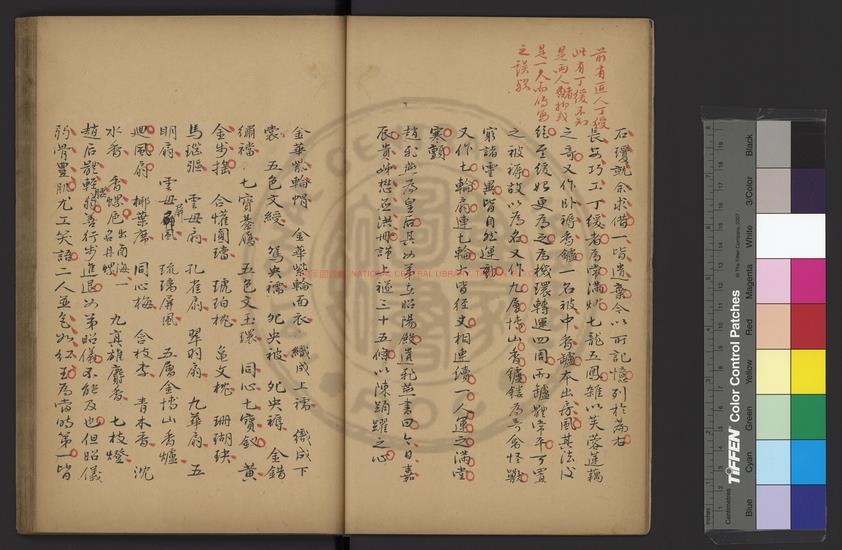 前有匠人丁緩
此有丁緩不知
是兩人抑或
是一人而傳寫
之誤歟
石瓊就余求借一皆遺棄今以所記憶列於篇右
長安巧工丁緩者為常滿燈七龍五鳳雜以芙蓉蓮藕
之奇又作臥褥香爐一名被中香爐本出房風其法後
絕至緩始更為之為機環轉運四周而爐體常平可置
之被褥故以為名又作九層博山香爐鏤為奇禽怪獸
窮諸靈異皆自然運動
又作七輪扇連七輪皆徑丈相連續一人運之滿堂
寒顫
趙飛燕為皇后其女弟在昭陽殿遺飛燕書曰今日嘉
辰貴姊懋膺洪冊謹上襚三十五條以陳踊躍之心
金華紫輪帽 金華紫輪面衣 織成上襦 織成下
裳 五色文綬 鴛央襦 鴛央被 鴛央褥 金錯
繡襠 七寶綦履 五色文玉環 同心七寶釵 黃
金步搖 合懽圓璫 琥珀枕 龜文枕 珊瑚玦
馬瑙彄 雲母扇 孔雀扇 翠羽扇 九華扇 五
明扇 雲母屏風 琉璃屏風 五層金博山香爐
迴風扇 椰葉席 同心梅 含枝李 青木香 沈
水香 香螺卮出南海一名丹螺 九真雄麝香 七枝燈
趙后體輕腰弱善行步進退女弟昭儀不能及也但昭儀
弱骨豐肌尤工笑語二人並色如紅玉為當時第一皆
NATIONAL CENTRAL LIBRARY
TIFFEN Color Control Patches
© The Tiffen Company, 2007
Blue
Cyan
Green
Yellow
Red
Magenta
White
3/Color
Black
Centimetres
Inches